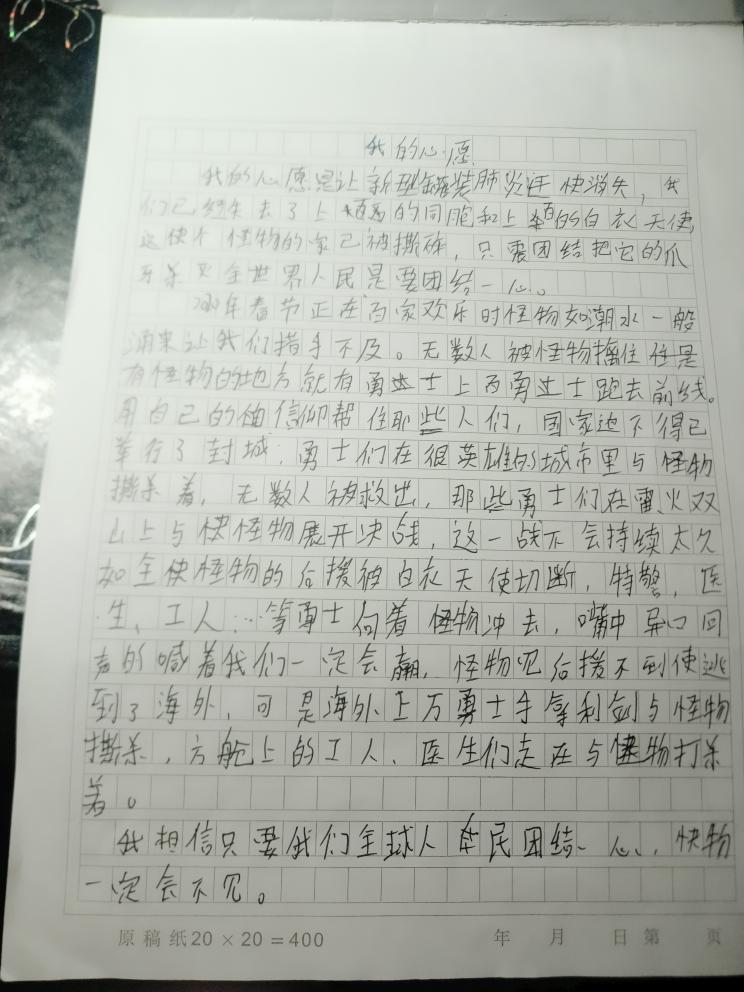 我的心愿
我的心愿是让新型罐装肺炎迁快消失，我
们已经失去了上百的同胞和上百的白衣天使，
这使个怪物的家已被撕碎，只要团结把它的爪
牙杀灭全世界人民是要团结一心。
2020年春节正在百家欢乐时怪物如潮水一般
涌来让我们措手不及。无数人被怪物擒住但是
有怪物的地方就有勇士上百勇士跑去前线。
用自己的信仰帮住那些人们，国家迫不得已
举行了封城，勇士们在很英雄的城市里与怪物
撕杀着，无数人被救出，那些勇士们在雷火双
山上与怪物展开决战，这一战不会持续太久
如今使怪物的后援被白衣天使切断，特警，医
生、工人…等勇士向着怪物冲去，嘴中异口同
声的喊着我们一定会赢，怪物见后援不到使逃
到了海外，可是海外上万勇士手拿利剑与怪物
撕杀，方舱上的工人、医生们走在与怪物打杀
着。
我相信只要我们全球人民团结一心，快物
一定会不见。
原稿纸20×20=400 年 月 日第 页